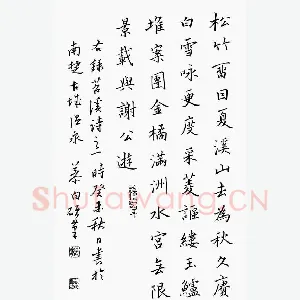 松竹留因夏溪山去為秋久賡
白雪咏更度采菱謳縷玉鱸
堆案團金橘滿洲水宮無限
景載與謝公遊
右錄苕溪詩之一時癸未秋日書於
南楚古城
Shufawang.CN